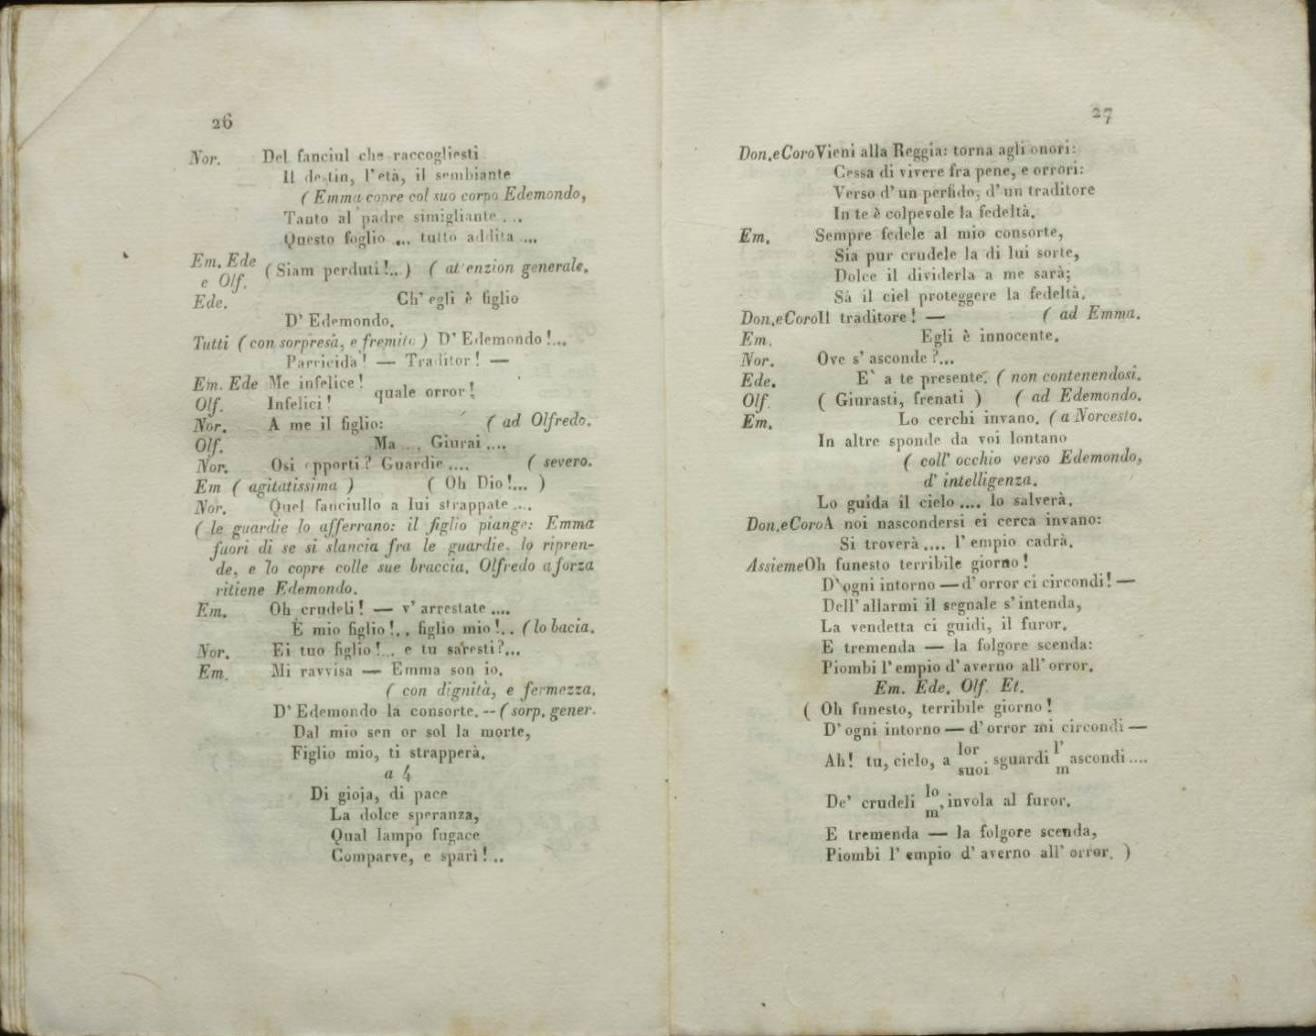 26
Nor. Del fanciul che raccogliesti
Il destin, l'età, il sembiante
( Emma copre col suo corpo Edemondo,
Tanto al padre simigliante . ..
Questo foglio ... tutto addita ...
Em. Ede e Olf. ( Siam perduti!.. ) ( attenzion generale.
Ede. Ch' egli è figlio
D' Edemondo.
Tutti ( con sorpresa, e fremito ) D' Edemondo !...
Parricida ! — Traditor ! —
Em. Ede Me infelice !
quale orror !
Olf. Infelici !
Nor. A me il figlio: ( ad Olfredo.
Olf. Ma ... Giurai ....
Nor. Osi opporti ? Guardie .... ( severo.
Em ( agitatissima ) ( Oh Dio !... )
Nor. Quel fanciullo a lui strappate ....
( le guardie lo afferrano: il figlio piange: Emma
fuori di se si slancia fra le guardie, lo ripren-
de, e lo copre colle sue braccia. Olfredo a forza
ritiene Edemondo.
Em. Oh crudeli ! — v' arrestate ....
È mio figlio !.. figlio mio !.. ( lo bacia.
Nor. Ei tuo figlio !... e tu saresti ?...
Em. Mi ravvisa — Emma son io.
( con dignità, e fermezza.
D' Edemondo la consorte. -- ( sorp. gener.
Dal mio sen or sol la morte,
Figlio mio, ti strapperà.
a 4
Di gioja, di pace
La dolce speranza,
Qual lampo fugace
Comparve, e sparì ! ..
27
Don.eCoro Vieni alla Reggia: torna agli onori:
Cessa di vivere fra pene, e orrori:
Verso d' un perfido, d' un traditore
In te è colpevole la fedeltà.
Em. Sempre fedele al mio consorte,
Sia pur crudele la di lui sorte,
Dolce il dividerla a me sarà;
Sà il ciel proteggere la fedeltà.
Don.eCoro Il traditore ! — ( ad Emma.
Em. Egli è innocente.
Nor. Ove s' asconde ?...
Ede. E` a te presente. ( non contenendosi.
Olf. ( Giurasti, frenati ) ( ad Edemondo.
Em. Lo cerchi invano. ( a Norcesto.
In altre sponde da voi lontano
( coll' occhio verso Edemondo,
d' intelligenza.
Lo guida il cielo .... lo salverà.
Don.eCoro A noi nascondersi ei cerca invano:
Si troverà .... l' empio cadrà.
Assieme Oh funesto terribile giorno !
D'ogni intorno — d' orror ci circondi! —
Dell' allarmi il segnale s' intenda,
La vendetta ci guidi, il furor.
E tremenda — la folgore scenda:
Piombi l' empio d' averno all' orror.
Em. Ede. Olf. Et.
( Oh funesto, terribile giorno !
D' ogni intorno — d' orror mi circondi —
Ah! tu, cielo, a lor suoi sguardi l' m ascondi ....
De' crudeli lo m' invola al furor.
E tremenda — la folgore scenda,
Piombi l' empio d' averno all' orror. )